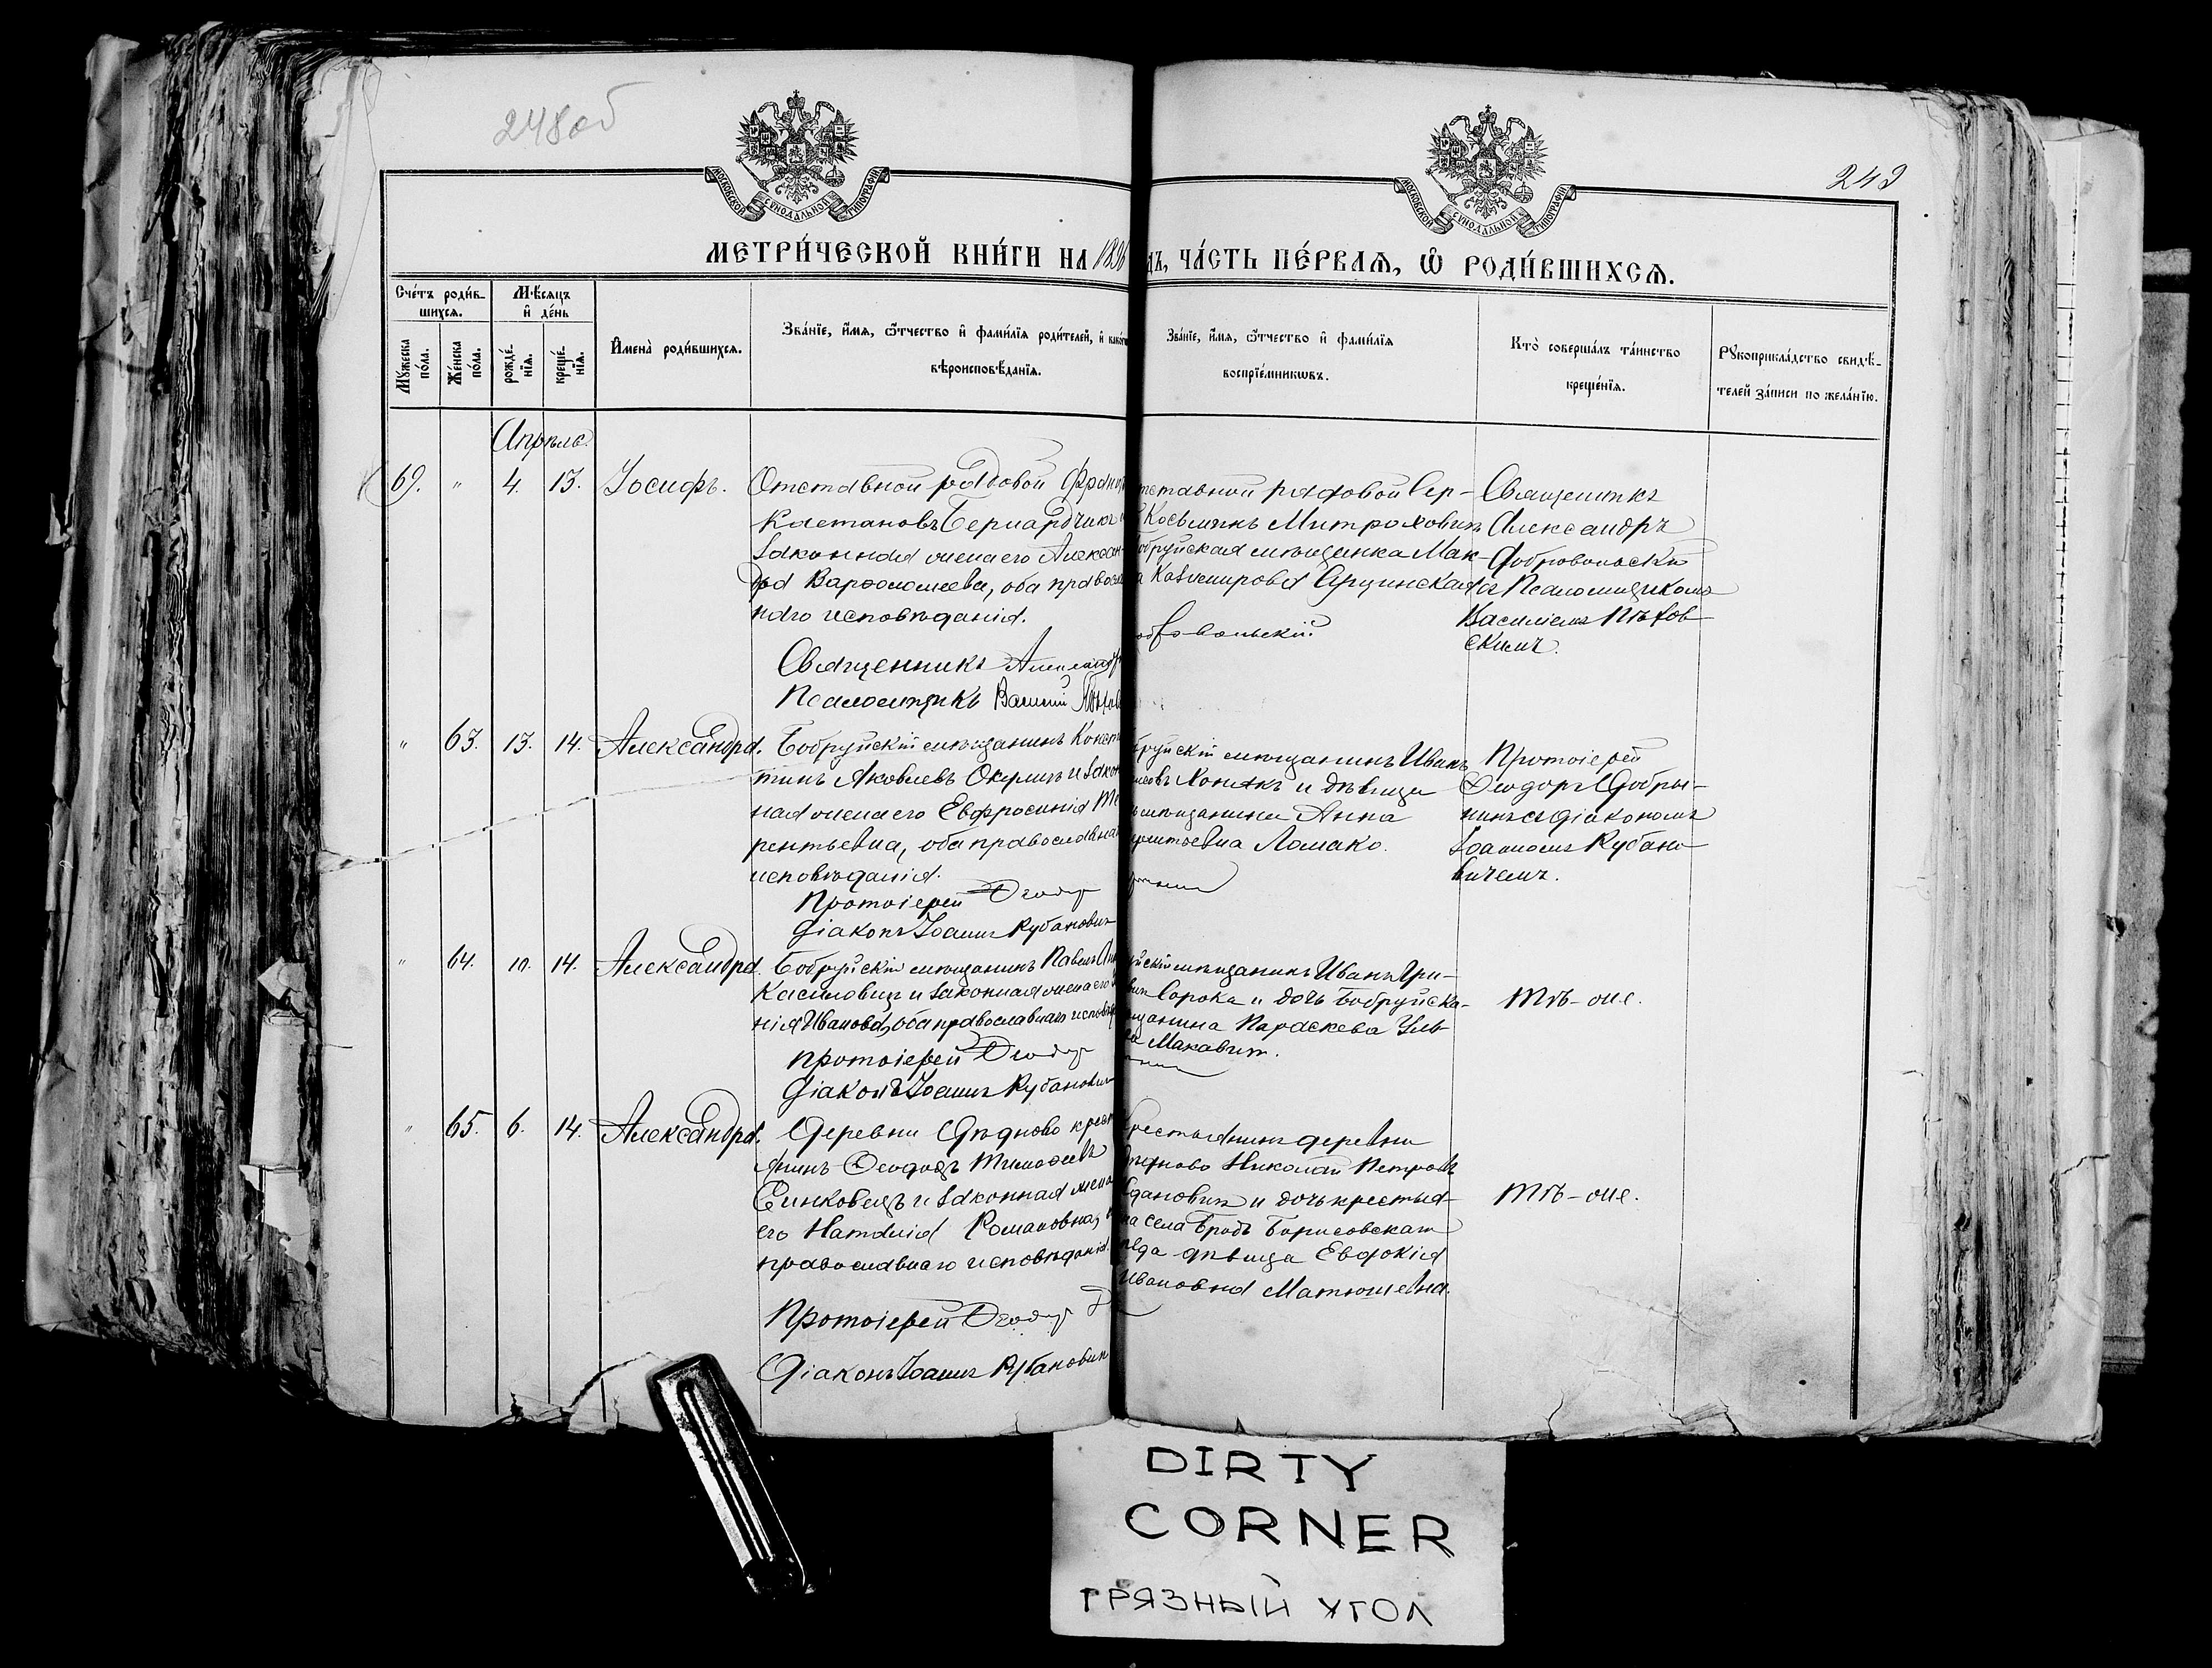 248об
249
МОСКОВСКОЙ СУНОДАЛЬНОЙ ТИПОГРАФІИ
МОСКОВСКОЙ СУНОДАЛЬНОЙ ТИПОГРАФІИ
МЕТРИ́ЧЕСКОЙ КНИ́ГИ НА 1896
ДЪ, ЧА́СТЬ ПЕ́РВАѦ, Ѿ РОДИ́ВШИХСѦ.
Сче́тъ роди́в-
шихсѧ.
Мѣ́сѧцъ
и҆ де́нь
Мꙋжеска
по́ла.
Же́нска
по́ла.
рожде́-
нїѧ.
креще́-
нїѧ.
И҆мена̀ роди́вшихсѧ.
Зва́нїе, и҆́мѧ, ѻ҆́тчество и҆ фами́лїѧ роди́телей, и҆
вѣроисповѣ́данїѧ.
Зва́нїе, и҆́мѧ, ѻ҆́тчество и҆ фами́лїѧ
воспрїе́мникѡвъ.
Кто̀ соверша́лъ та́инство
креще́нїѧ.
Рꙋкоприкла́дство свидѣ́-
телей за́писи по жела́нїю.
Апрѣль.
69. " 4. 13. Іосифъ.
Отставной рядовой Франц
Каетановъ Бернардчикъ и
законная жена его Алексан-
дра Варѳоломеева, оба правосл
наго исповѣданія.
Священникъ Александръ
Псаломщикъ Василій
тставной рядовой Сер-
Косьминъ Митрохович
обруйская мѣщанка Мак-
а Казимирова
обровольскій
Священникъ
Александръ
Добровольскій
съ Псаломщикомъ
Василіемъ
скимъ.
" 63. 13. 14. Александра.
Бобруйскій мѣщанинъ Конст
тинъ Яковлевъ Окуличъ и закон
ная жена его Евфросинія Те
рентьевна, оба православна
исповѣданія.
Протоіерей Ѳеодоръ
Діаконъ Іоаннъ Кубанович
бруйскій мѣщанинъ Иванъ
Хонякъ и дѣвица
мѣщанина Анна
рентьевна Ломако.
Протоіерей
Ѳеодоръ Добры-
нинъ съ діакономъ
Іоанномъ Кубано-
вичемъ.
" 64. 10. 14. Александра.
Бобруйскій мѣщанинъ Павелъ
Касиловичъ и законная жена его
нія Иванова, оба православнаго исповѣд
Протоіерей Ѳеодоръ
Діаконъ Іоаннъ Кубанович
йскій мѣщанинъ Иванъ Гри-
Сорока и дочь Бобруйска-
щанина Параскева Уль-
на Макавич.
Тѣ-же.
" 65. 6. 14. Александра.
Деревни Дѣдново крест
янинъ Ѳеодоръ Тимоѳеевъ
Синковецъ и законная жена
его Наталія Романовна,
православнаго исповѣданія.
Протоіерей Ѳеодоръ
Діаконъ Іоаннъ Кубанович
Крестьянинъ деревни
Дѣдново Николай Петровъ
дановичъ и дочь крестья-
на села Бродъ Борисовскаго
уѣзда дѣвица Евдокія
Ивановна Матюшевна.
Тѣ-же.
DIRTY
CORNER
ГРЯЗНЫЙ УГОЛ